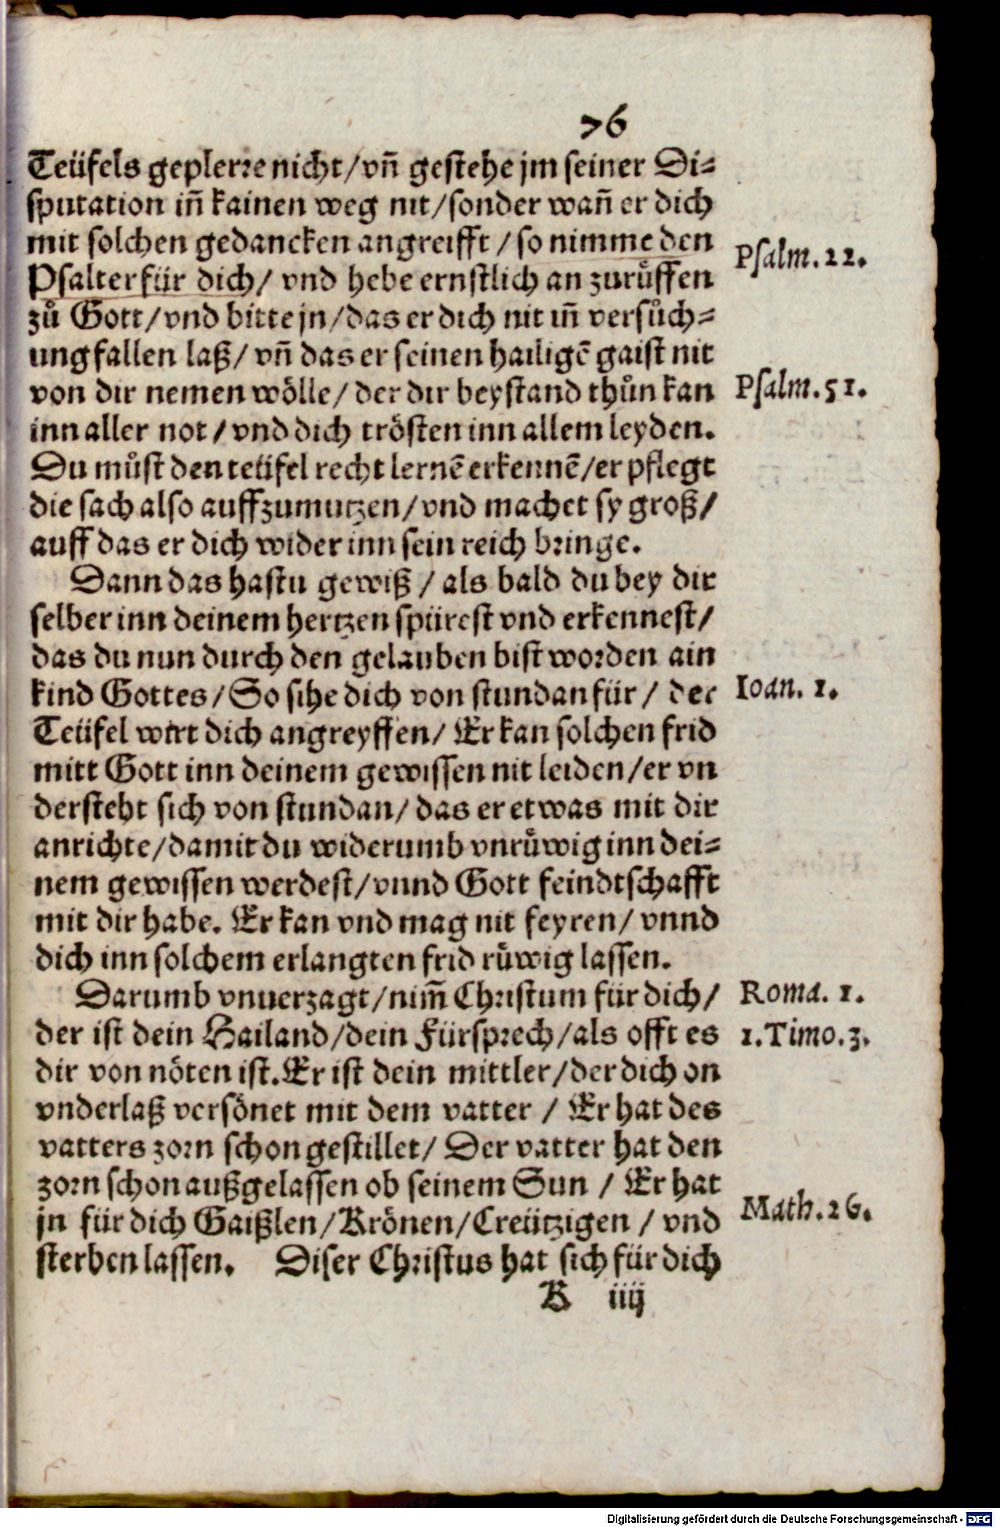 76
Teüfels geplerre nicht/vñ gestehe jm seiner Di⸗
sputation iñ kainen weg nit/sonder wañ er dich
mit solchen gedancken angreifft/so nimme den
Psalter für dich/ vnd hebe ernstlich an zurůffen
Psalm.22.
zů Gott/vnd bitte jn/das er dich nit iñ versůch⸗
ung fallen laß/ vñ das er seinen hailigē gaist nit
von dir nemen wölle/ der dir beystand thůn kan
Psalm.51.
inn aller not/ vnd dich trösten inn allem leyden.
Du můst den teüfel recht lernē erkennē/er pflegt
die sach also auffzumutzen/vnd machet sy groß/
auff das er dich wider inn sein reich bringe.
Dann das hastu gewiß/ als bald du bey dir
selber inn deinem hertzen spürest vnd erkennest/
das du nun durch den gelauben bist worden ain
kind Gottes/So sihe dich von stundan für/ der
Ioan. 1.
Teüfel wirt dich angreyffen/ Er kan solchen frid
mitt Gott inn deinem gewissen nit leiden/er vn
dersteht sich von stundan/das er etwas mit dir
anrichte/damit du widerumb vnrůwig inn dei⸗
nem gewissen werdest/vnnd Gott feindtschafft
mit dir habe. Er kan vnd mag nit feyren/ vnnd
dich inn solchem erlangten frid růwig lassen.
Darumb vnuerzagt/nim̃ Christum für dich/
Roma. 1.
der ist dein Hailand/dein Fürsprech/als offt es
1.Timo.3.
dir von nöten ist.Er ist dein mittler/der dich on
vnderlaß versönet mit dem vatter / Er hat des
vatters zorn schon gestillet/ Der vatter hat den
zorn schon außgelassen ob seinem Sun / Er hat
jn für dich Gaißlen/Krönen/Creützigen / vnd
Math.26.
sterben lassen. Diser Christus hat sich für dich
K iiij
Digitalisierung gefördert durch die Deutsche Forschungsgemeinschaft - DFG